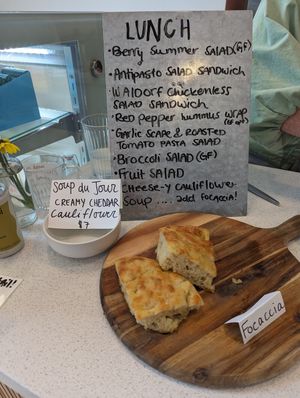 LUNCH
• Berry Summer SALAD (GF)
• Antipasto SALAD SANDWICH
• WALDORF CHICKENLESS
SALAD SANDWICH
• RED PEPPER HUMMUS WRAP
• GARLIC SCAPE & ROASTED
TOMATO PASTA SALAD
• BROCCOLI SALAD (GF)
• FRUIT SALAD
CHEESE-Y CAULIFLOWER
SOUP .... add focaccia!
SOUP DU JOUR
CREAMY CHEDDAR
CAULIFLOWER
$7
FOCACCIA